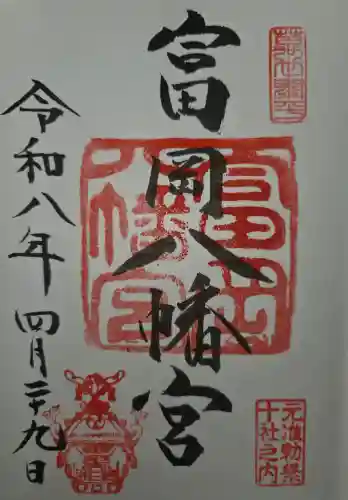 富岡八幡宮
令和八年四月二十九日
元准勅祭
十社之内